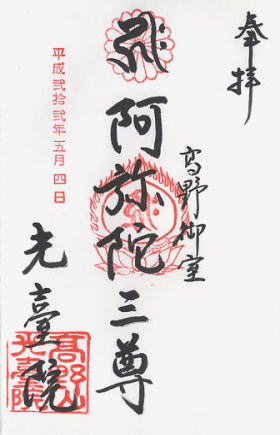 奉拝
高野御室
阿弥陀三尊
平成弐拾弐年五月四日
光臺院
高野山
光臺院